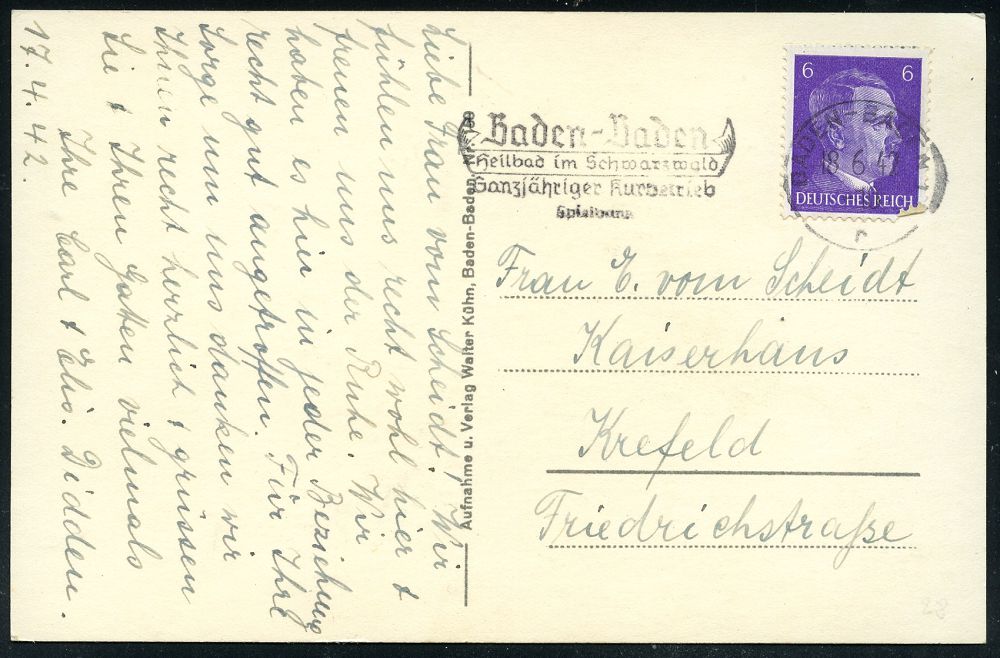 Liebe Frau vom Scheidt! Wir
fühlen uns recht wohl hier &
freuen uns der Ruhe. Wir
haben es hier in jeder Beziehung
recht gut angetroffen. Für Ihre
Sorge um uns danken wir
Ihnen recht herzlich & grüssen
Sie & Ihren Gatten vielmals
Ihre Carl & Elis. Didden.
17.4.42.
Aufnahme u. Verlag Walter Kühn, Baden-Baden. Nr.
Baden-Baden
Heilbad im Schwarzwald
Ganzjähriger Kurbetrieb
Spielbank
6 6
DEUTSCHES REICH
BADEN-BADEN
18.6.42
Frau E. vom Scheidt
Kaiserhaus
Krefeld
Friedrichstraße
28